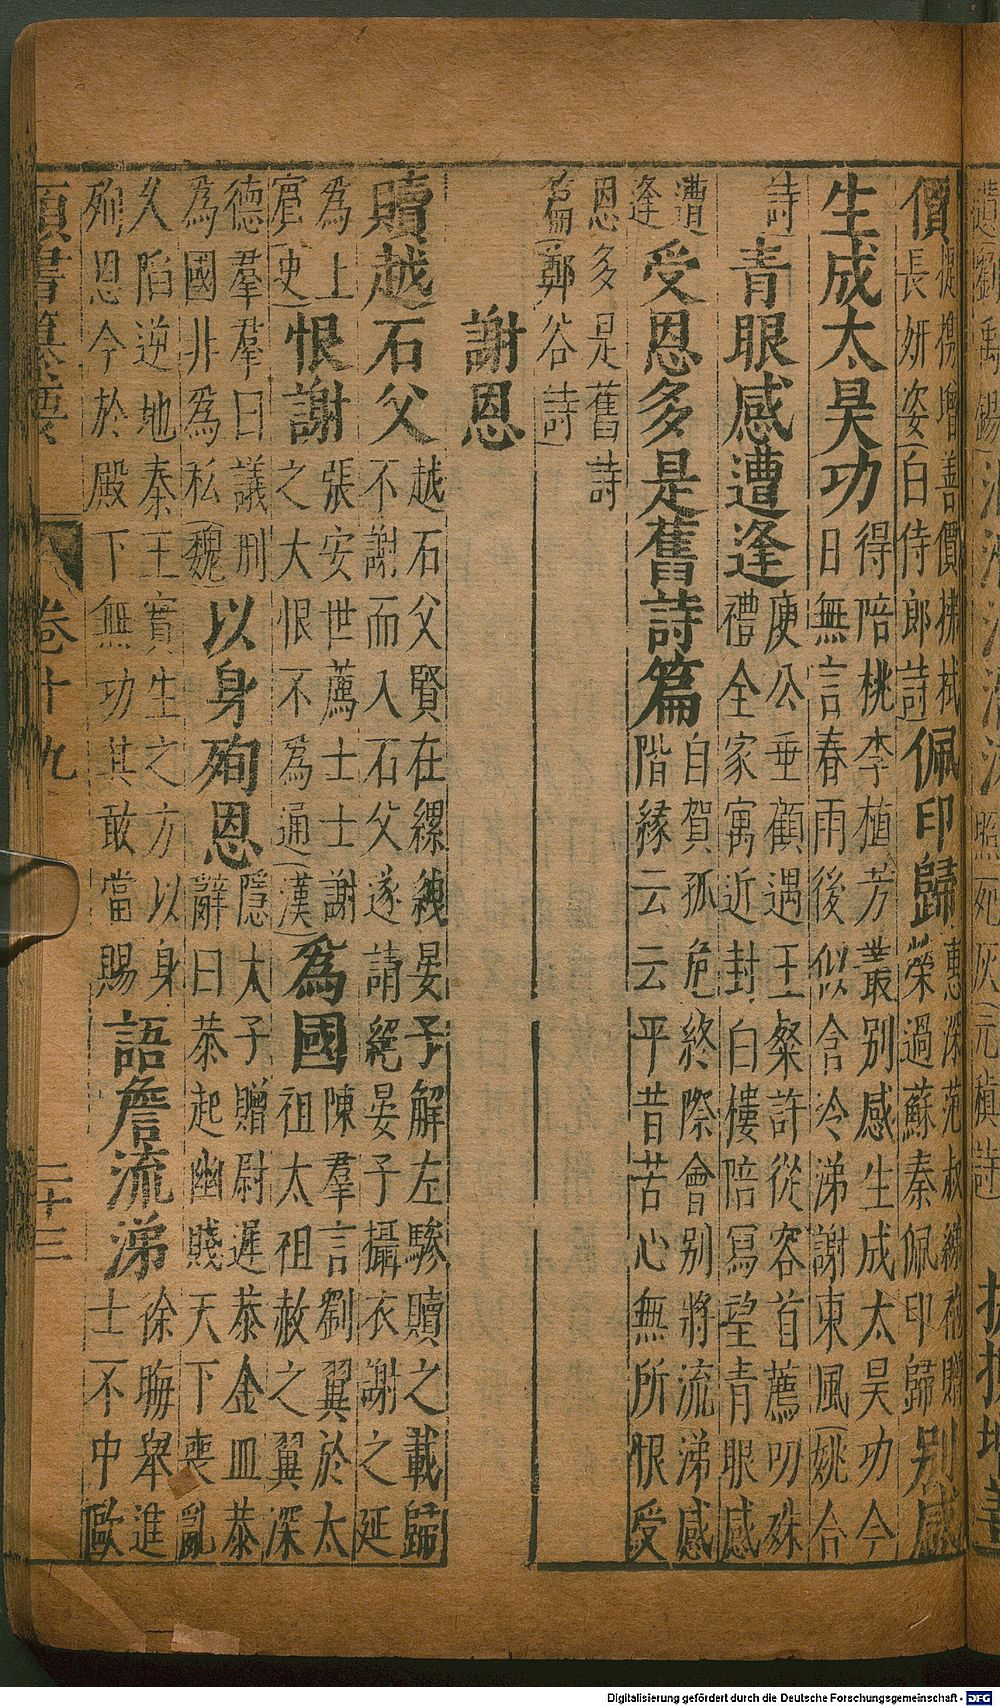 價提携增善價拂拭
長妍姿白侍郎詩佩印歸惠深范叔綈袍贈
榮過蘇秦佩印歸別感
生成太昊功得陪桃李植芳叢別感生成太昊功今
日無言春雨後似含冷涕謝東風姚合
詩青眼感遭逢庾公垂顧遇王粲許從容首薦叨殊
禮全家寓近封白樓陪寫望青眼感
遭逢受恩多是舊詩篇自賀孤危終際會別將流涕感
階緣云云平昔苦心無所恨受
恩多是舊詩
篇鄭谷詩
謝恩
贖越石父越石父賢在縲絏晏子解左驂贖之載歸
不謝而入石父遂請絕晏子攝衣謝之延
為上
賓史恨謝張安世薦士士謝
之大恨不為通漢為國陳羣言劉翼於太
祖太祖赦之翼深
德羣羣曰議刑
為國非為私魏以身殉恩隱太子贈尉遲恭金皿恭
辭曰恭起幽賤天下喪亂
久陷逆地秦王實生之方以身
殉恩今於殿下無功其敢當賜語詹流涕徐晦舉進
士不中歐
類書纂要
卷十九
二十三
Digitalisierung gefördert durch die Deutsche Forschungsgemeinschaft - DFG